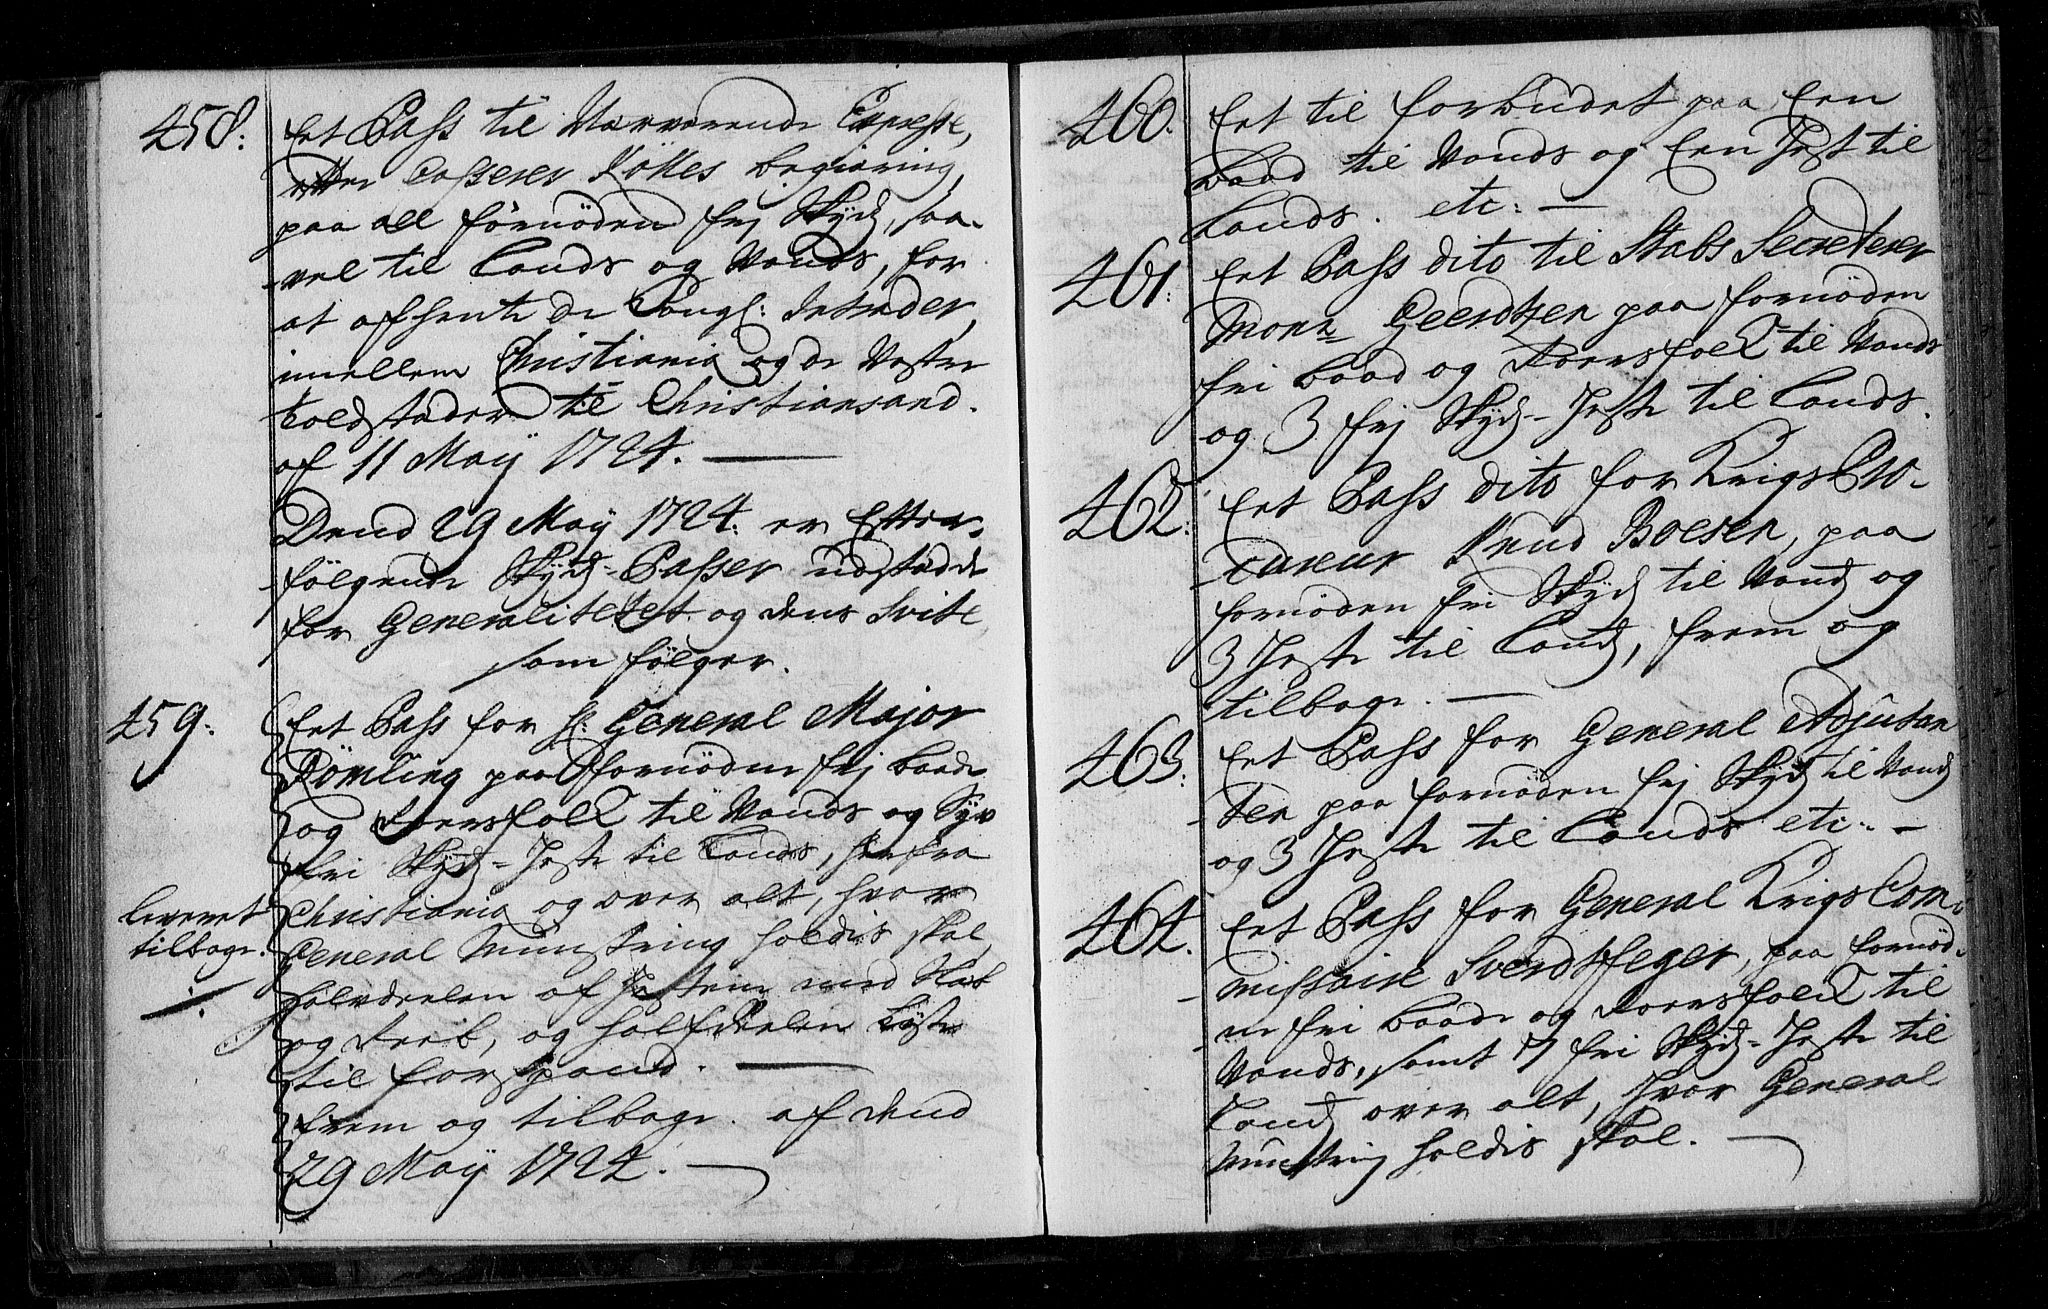 458: Et Pass til Nærværende Expresse,
efter Casserer Kølles begiæring,
paa all fornøden frj Skÿds, saa-
vel til Lands og Vands, for
at afhente de Kongl: Intrader,
imellem Christiania og de Vestre
toldstæder til Christiansand.
af 11 Maÿ 1724.
Dend 29 Maÿ 1724. er Efter-
følgende Skÿds-Passer udstædde
for Generalitetet og dens Svite
som følger.
459. Et Pass for Hr: General Major
Rømling paa fornøden frj baade
og Roersfolk til Vands og Syv
fri Skÿds-Heste til Lands, her fra
Christiania og over alt, hvor
General Mønstring holdis skal,
leveret
tilbage.
halvdeelen af Hestene med
og Reeb, og halfdeelen løse
til forspand.
frem og tilbage. af dend
29 Maÿ 1724.
460. Et til forbudet paa Een
baad til Vands og Een Hest til
Lands. etc:
461: Et Pass dito til Stabs Secreterer
Monr Geerdtzen paa fornøden
fri baad og Roersfolk til Vands
og 3 frj Skÿds-Heste til Lands.
462: Et Pass dito for Krigs Pro-
cureur Knud Boesen, paa
fornøden fri Skÿds til Vands og
3 Heste til Lands, frem og
tilbage.
463: Et Pass for General Adjutan-
ten paa fornøden frj Skÿds til Vands
og 3 Heste til Lands etc:
464. Et Pass for General Krigs Com-
missaire Sverdtfeger, paa fornød-
ne fri baade og Roersfolk til
Vands, samt 7 fri Skÿds-Heste til
Lands over alt, hvor General
Mønstring holdis skal.